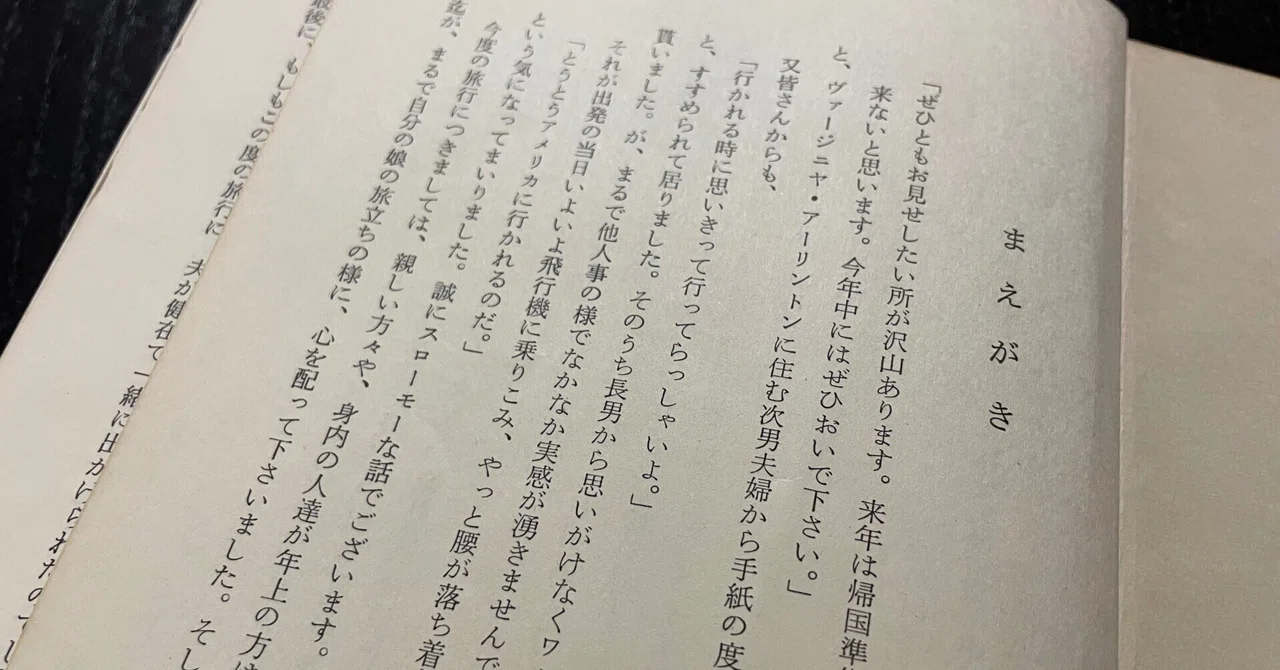 まえがき
「ぜひともお見せしたい所が沢山あります。来年は帰国準
来ないと思います。今年中にはぜひおいで下さい。」
と、ヴァージニヤ・アーリントンに住む次男夫婦から手紙の度
又皆さんからも、
「行かれる時に思いきって行ってらっしゃいよ。」
と、すすめられて居りました。そのうち長男から思いがけなくワ
貰いました。が、まるで他人事の様でなかなか実感が湧きませんで
それが出発の当日いよいよ飛行機に乗りこみ、やっと腰が落ち着
「とうとうアメリカに行かれるのだ。」
という気になってまいりました。誠にスローモーな話でございます。
今度の旅行につきましては、親しい方々や、身内の人達が年上の方は
迄が、まるで自分の娘の旅立ちの様に、心を配って下さいました。そし
最後に、もしもこの度の旅行に、夫が健在で一緒に出かけられたのでし